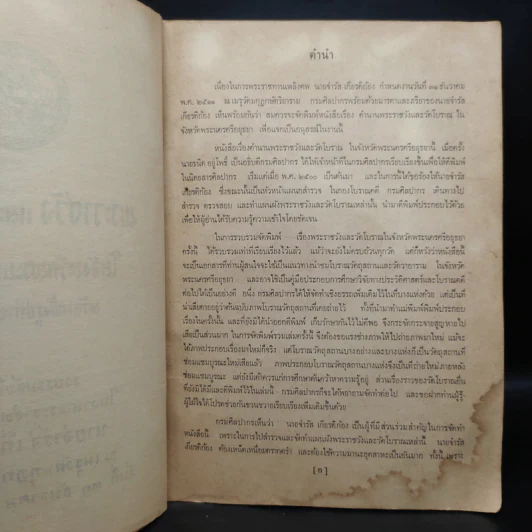 คำนำ
เนื่องในการพระราชทานเพลิงศพ นายจำรัส เกียรติก้อง กำหนดงานวันที่ ๓๑ ธันวาคม
พ.ศ. ๒๕๑๑ ณ เมรุวัดมกุฏกษัตริยาราม กรมศิลปากรพร้อมด้วยมารดาและภริยาของนายจำรัส
เกียรติก้อง เห็นพร้อมกันว่า สมควรจะจัดพิมพ์หนังสือเรื่อง ตำนานพระราชวังและวัดโบราณ ใน
จังหวัดพระนครศรีอยุธยา เพื่อแจกเป็นอนุสรณ์ในงานนี้
หนังสือเรื่องตำนานพระราชวังและวัดโบราณ ในจังหวัดพระนครศรีอยุธยานี้ เมื่อครั้ง
นายธนิต อยู่โพธิ์ เป็นอธิบดีกรมศิลปากร ได้ให้เจ้าหน้าที่ในกรมศิลปากรเรียบเรียงขึ้นเพื่อให้ตีพิมพ์
ในนิตยสารศิลปากร เริ่มแต่เมื่อ พ.ศ. ๒๕๐๐ เป็นต้นมา และในการนี้ได้ขอร้องให้นายจำรัส
เกียรติก้อง ซึ่งขณะนั้นเป็นหัวหน้าแผนกสำรวจ ในกองโบราณคดี กรมศิลปากร เดินทางไป
สำรวจ ตรวจสอบ และทำแผนผังพระราชวังและวัดโบราณเหล่านั้น นำมาตีพิมพ์ประกอบไว้ด้วย
เพื่อให้ผู้อ่านได้รับความรู้ความเข้าใจโดยชัดเจน
ในการรวบรวมจัดพิมพ์ เรื่องพระราชวังและวัดโบราณในจังหวัดพระนครศรีอยุธยา
ครั้งนี้ ได้รวบรวมเท่าที่เรียบเรียงไว้แล้ว แม้ว่าจะยังไม่ครบถ้วนทุกวัด แต่ก็หวังว่าหนังสือนี้
จะเป็นเอกสารที่ท่านผู้สนใจจะใช้เป็นแนวทางนำชมโบราณวัตถุสถานและวัดวาอาราม ในจังหวัด
พระนครศรีอยุธยา และอาจใช้เป็นคู่มือประกอบการศึกษาวิจัยทางประวัติศาสตร์และโบราณคดี
ต่อไปได้เป็นอย่างดี อนึ่ง กรมศิลปากรได้ให้จัดทำเชิงอรรถเพิ่มเติมไว้ในที่บางแห่งด้วย แต่เป็นที่
น่าเสียดายอยู่ว่าต้นฉบับภาพโบราณวัตถุสถานที่เคยถ่ายไว้ ทั้งที่นำมาทำแม่พิมพ์พิมพ์ประกอบ
เรื่องในครั้งนั้น และที่ยังมิได้นำออกตีพิมพ์ เก็บรักษากันไว้ไม่ดีพอ จึงกระจัดกระจายสูญหายไป
เสียเป็นส่วนมาก ในการจัดพิมพ์รวมเล่มครั้งนี้ จึงต้องขอแรงช่างภาพให้ไปถ่ายภาพมาใหม่ แม้จะ
ได้ภาพประกอบเรื่องมาใหม่ก็จริง แต่โบราณวัตถุสถานบางอย่างและบางแห่งก็เป็นวัตถุสถานที่
ซ่อมแซมบูรณะใหม่เสียแล้ว ภาพประกอบโบราณวัตถุสถานบางแห่งจึงเป็นที่ถ่ายใหม่ภายหลัง
ซ่อมแซมบูรณะ แต่ยังไม่ดีกว่าแก่การศึกษาค้นคว้าหาความรู้อยู่ ส่วนเรื่องราวของวัดโบราณอื่น
ที่ยังมิได้มีและตีพิมพ์ไว้ในเล่มนี้ กรมศิลปากรก็จะได้พยายามจัดทำต่อไป และขอฝากท่านผู้รู้
ผู้ใฝ่ใจได้โปรดช่วยกันขวนขวายเรียบเรียงเพิ่มเติมขึ้นด้วย
กรมศิลปากรเห็นว่า นายจำรัส เกียรติก้อง เป็นผู้ที่มีส่วนร่วมสำคัญในการจัดทำ
หนังสือนี้ เพราะในการไปสำรวจและจัดทำแผนผังพระราชวังและวัดโบราณเหล่านี้ นายจำรัส
เกียรติก้อง ต้องเหน็ดเหนื่อยตรากตรำ และต้องใช้ความมานะอุตสาหะเป็นอันมาก ทั้งนี้ เพราะ
[ก]